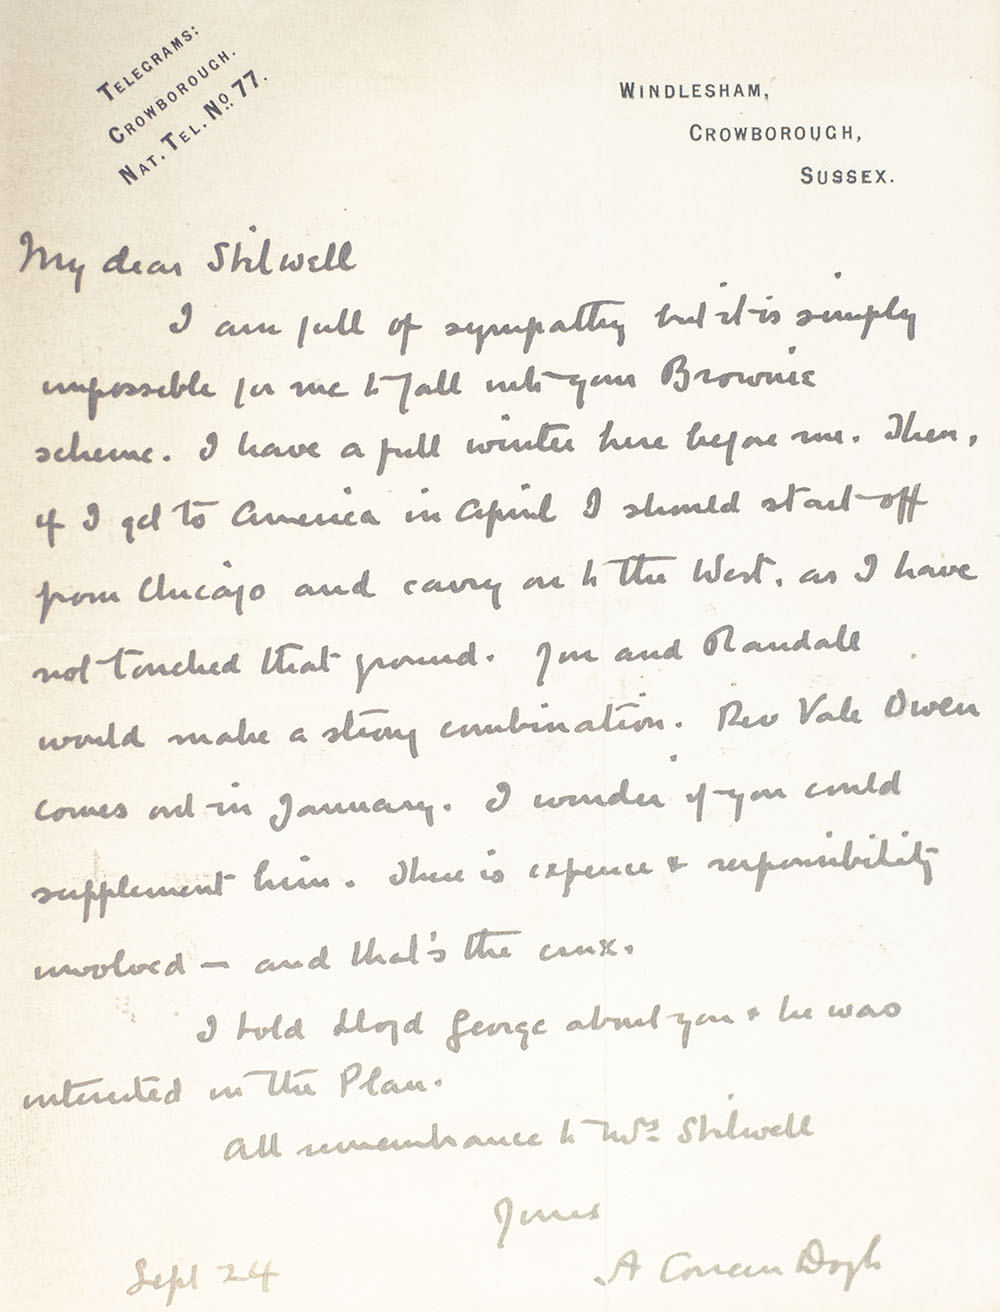 TELEGRAMS:
CROWBOROUGH.
NAT. TEL. No. 77.
WINDLESHAM,
CROWBOROUGH,
SUSSEX.
My dear Stilwell
I am full of sympathy but it is simply
impossible for me to fall into your Brownie
scheme. I have a full winter here before me. Then,
if I get to America in April I should start off
from Chicago and carry on to the West, as I have
not touched that ground. You and Randall
would make a strong combination. Rev Vale Owen
comes out in January. I wonder if you could
supplement him. There is expence & responsibility
involved — and that's the crux.
I told Lloyd George about you & he was
interested in the Plan.
All remembrance to Mrs Stilwell
Yours
A Conan Doyle
Sept 24